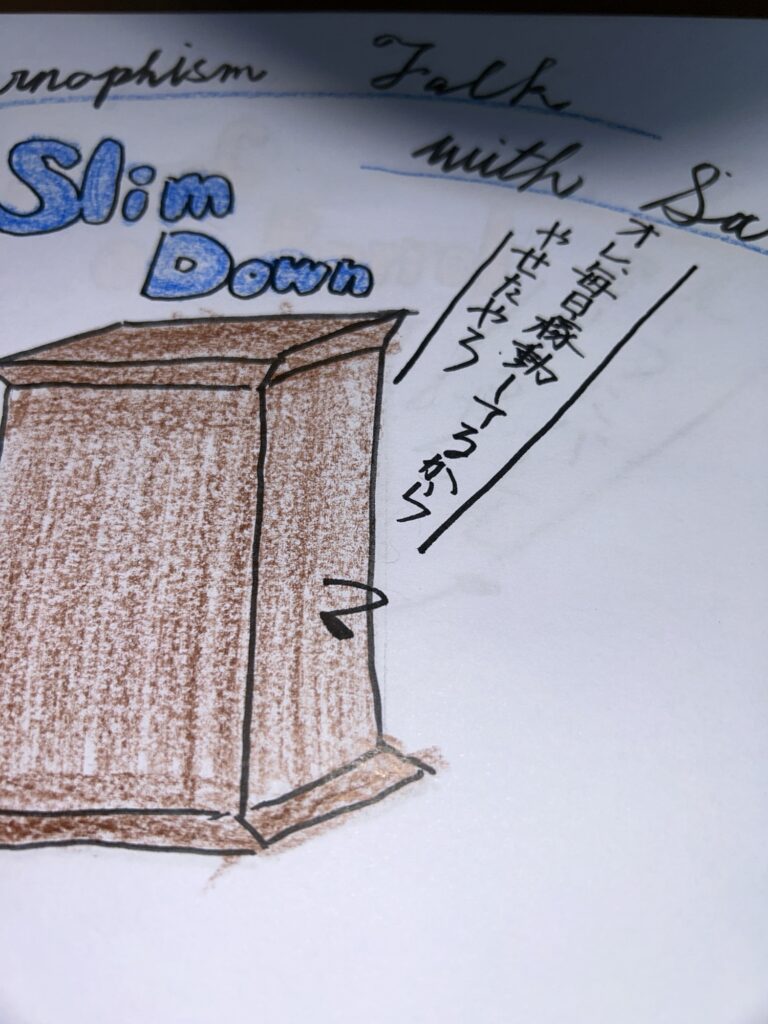 rnophism Talk
with Sa
Slim
Down
オレ、毎日稼動してるから
やせたやろ